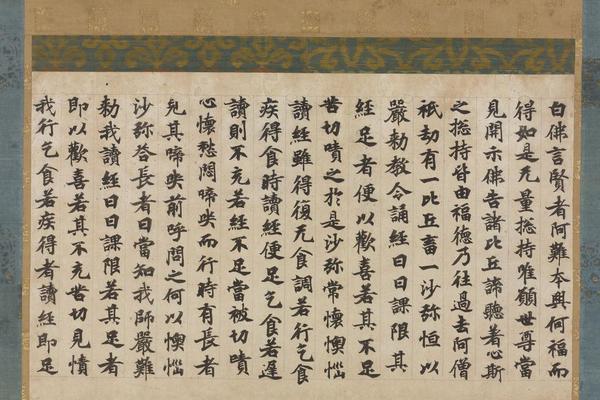 白佛言賢者阿難本與何福而
得如是无量捴持唯願世尊當
見開示佛告諸比丘諦聽著心斯
之捴持皆由福德乃往過去阿僧
祇劫有一比丘畜一沙弥恒以
嚴勅教令誦經日日課限其
經足者便以歡喜若其不足
苦切嘖之於是沙弥常懷懊惱
讀經雖得復无食調若行乞食
疾得食時讀經便足乞食若遲
讀則不充若經不足當被切嘖
心懷愁悶啼哭而行時有長者
見其啼哭前呼問之何以懊惱
沙弥答長者曰當知我師嚴難
勅我讀經日日課限若其足者
即以歡喜若其不充苦切見嘖
我行乞食若疾得者讀經即足